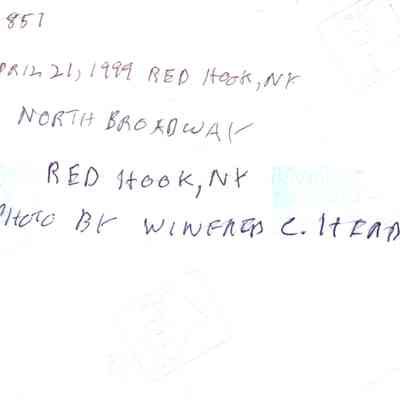 851
APRIL 21, 1999 RED HOOK, NY
NORTH BROADWAY
RED HOOK, NY
PHOTO BY WINFRED C. HEAD